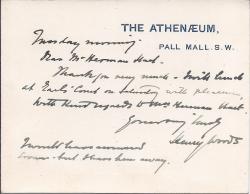 THE ATHENÆUM,
PALL MALL. S.W.
Tuesday morning.
Dear Mr Herman Hart.
Thank you very much – I will lunch
at Earl's Court on Saturday with pleasure,
With kind regards to Mrs Herman Hart.
Yours very truly
Henry Woods
I would have answered
sooner – but I have been away.